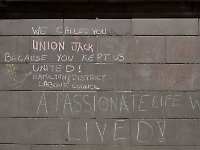 WE CALLED YOU
UNION JACK
BECAUSE YOU KEPT US
UNITED!
HAMILTON DISTRICT
LABOUR COUNCIL
A PASSIONATE LIFE W
LIVED!